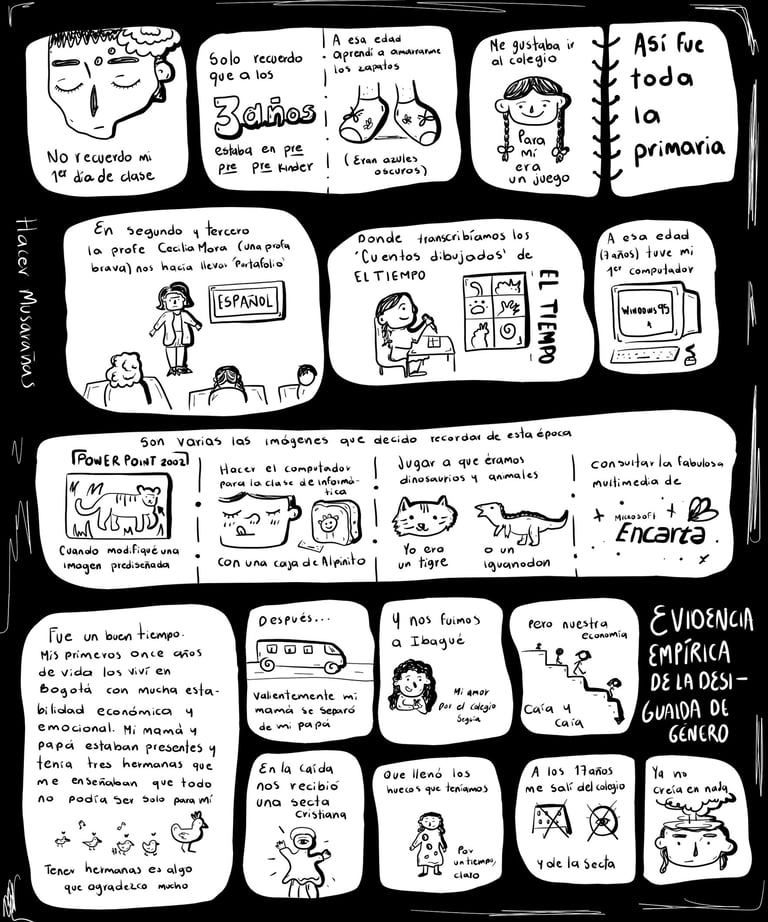 No recuerdo mi
1er día de clase
Solo recuerdo
que a los
3 años
estaba en pre
pre pre kinder
A esa edad
aprendí a amarrarme
los zapatos
(Eran azules
oscuros)
Me gustaba ir
al colegio
Para
mí
era
un juego
Así fue
toda
la
primaria
Hacer Musarañas
En segundo y tercero
la profe Cecilia Mora (una profa
brava) nos hacía llevar 'Portafolio'
ESPAÑOL
Donde transcribíamos los
'Cuentos dibujados' de
EL TIEMPO
EL TIEMPO
A esa edad
(7 años) tuve mi
1er computador
WINDOWS 95
Son varias las imágenes que decido recordar de esta época
POWER POINT 2002
Cuando modifiqué una
imagen prediseñada
Hacer el computador
para la clase de informá-
tica
con una caja de Alpinito
Jugar a que éramos
dinosaurios y animales
Yo era
un tigre
o un
iguanodon
Consultar la fabulosa
multimedia de
Microsoft
Encarta
Fue un buen tiempo.
Mis primeros once años
de vida los viví en
Bogotá con mucha esta-
bilidad económica y
emocional. Mi mamá y
papá estaban presentes y
tenía tres hermanas que
me enseñaban que todo
no podía ser solo para mí
Tener hermanas es algo
que agradezco mucho
Después...
Valientemente mi
mamá se separó
de mi papá
Y nos fuimos
a Ibagué
Mi amor
Por el colegio
Seguía
Pero nuestra
economía
Caía y
Caía
EVIDENCIA
EMPÍRICA
DE LA DESI-
GUALDA DE
GÉNERO
En la caída
nos recibió
una secta
cristiana
Que llenó los
huecos que teníamos
Por
un tiempo,
claro
A los 17 años
me salí del colegio
y de la secta
Ya no
creía en nada